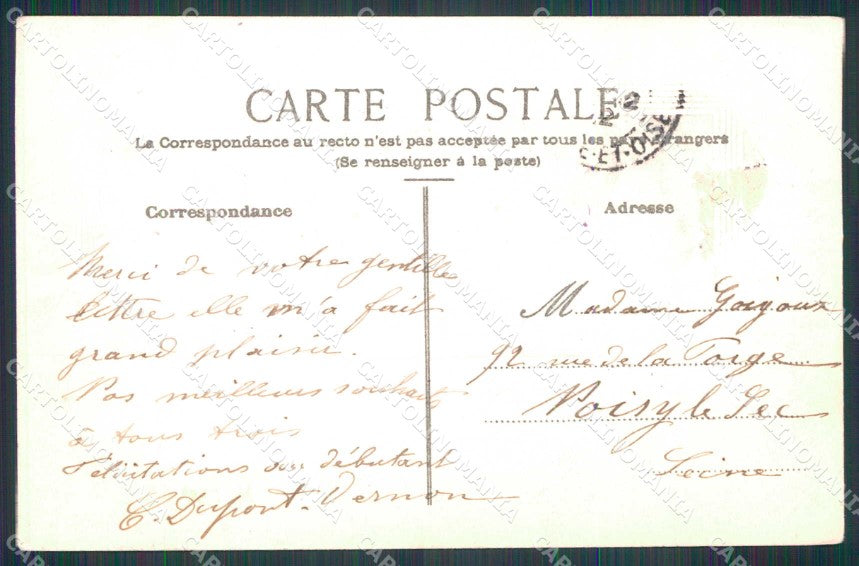 CARTE POSTALE
La Correspondance au recto n'est pas acceptée par tous les pays étrangers
(Se renseigner à la poste)
Correspondance
Adresse
ET-OISE
Merci de votre gentille
lettre elle m'a fait
grand plaisir.
Nos meilleurs souhaits
à tous trois
Félicitations au débutant
C. Dupont-Vernon
Madame Goujoux
92 rue de la Forge
Noisy le Sec
Seine
CARTOLINOMANIA